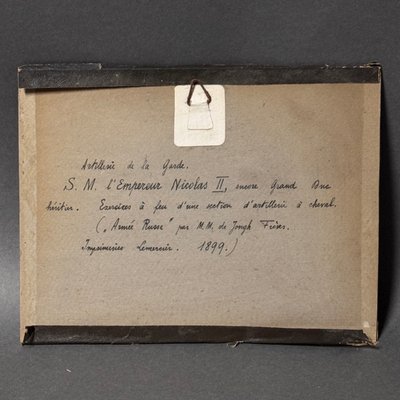 Artillerie de la Garde.
S. M. l'Empereur Nicolas II, encore Grand Duc
héritier. Exercices à feu d'une section d'artillerie à cheval.
("Armée Russe" par M.M. de Jongh Frères.
Imprimeries Lemercier. 1899.)